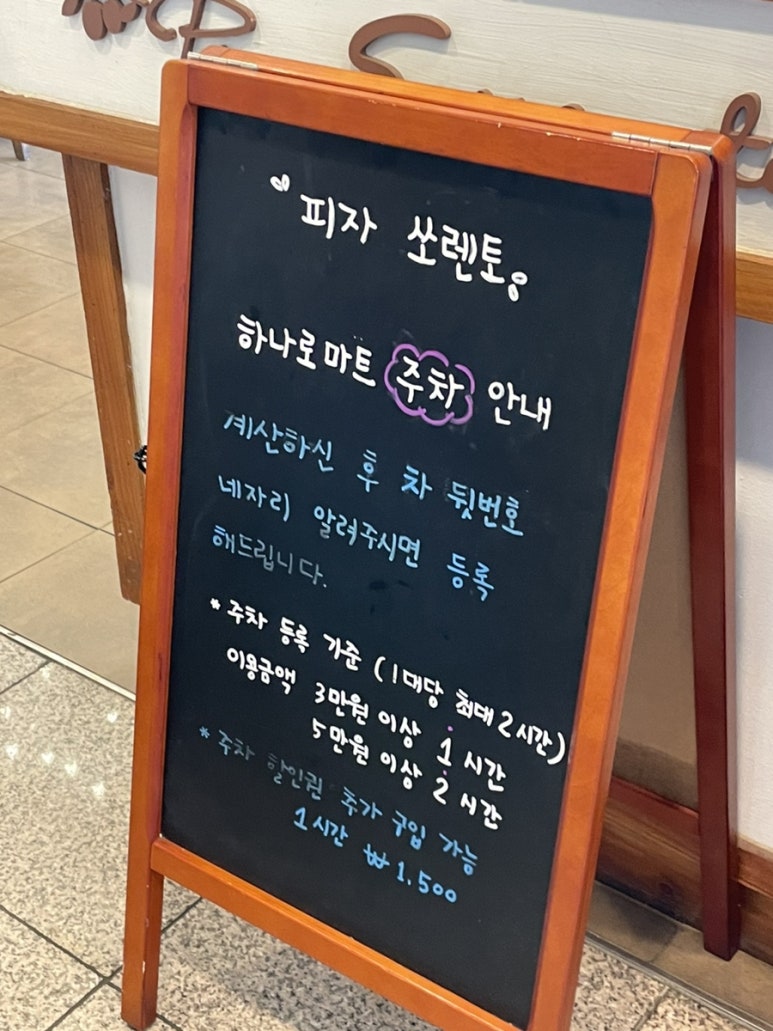 피자 쏘렌토
하나로마트 주차 안내
계산하신 후 차 뒷번호
네자리 알려주시면 등록
해드립니다.
* 주차 등록 기준 (1대당 최대 2시간)
이용금액 3만원 이상 1시간
5만원 이상 2시간
* 주차 할인권 추가 구입 가능
1시간 ₩1,500